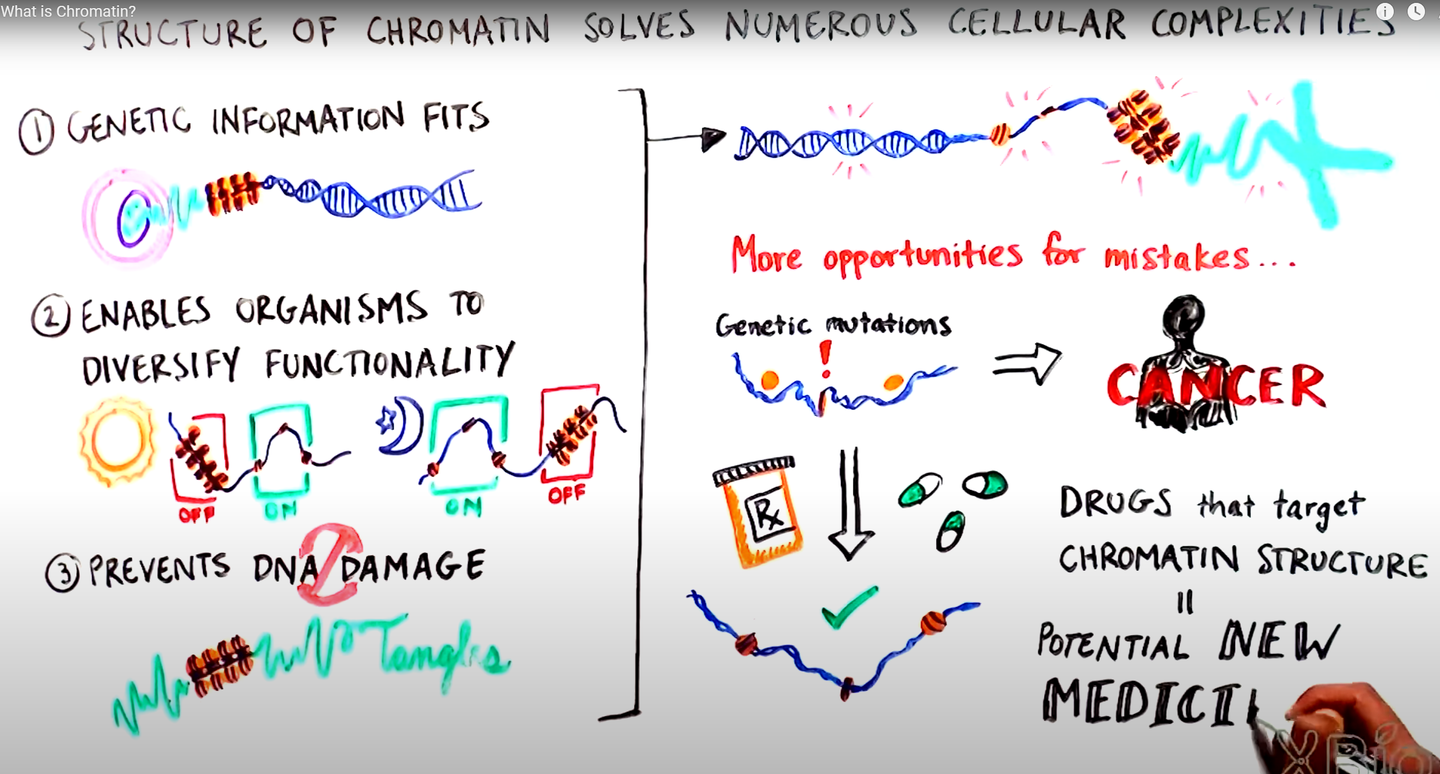 What is Chromatin?
STRUCTURE OF CHROMATIN SOLVES NUMEROUS CELLULAR COMPLEXITIES
① GENETIC INFORMATION FITS
② ENABLES ORGANISMS TO
DIVERSIFY FUNCTIONALITY
OFF
ON
ON
OFF
③ PREVENTS DNA DAMAGE
Tangles
More opportunities for mistakes...
Genetic mutations
!
CANCER
Rx
DRUGS that target
CHROMATIN STRUCTURE
=
POTENTIAL NEW
MEDICI